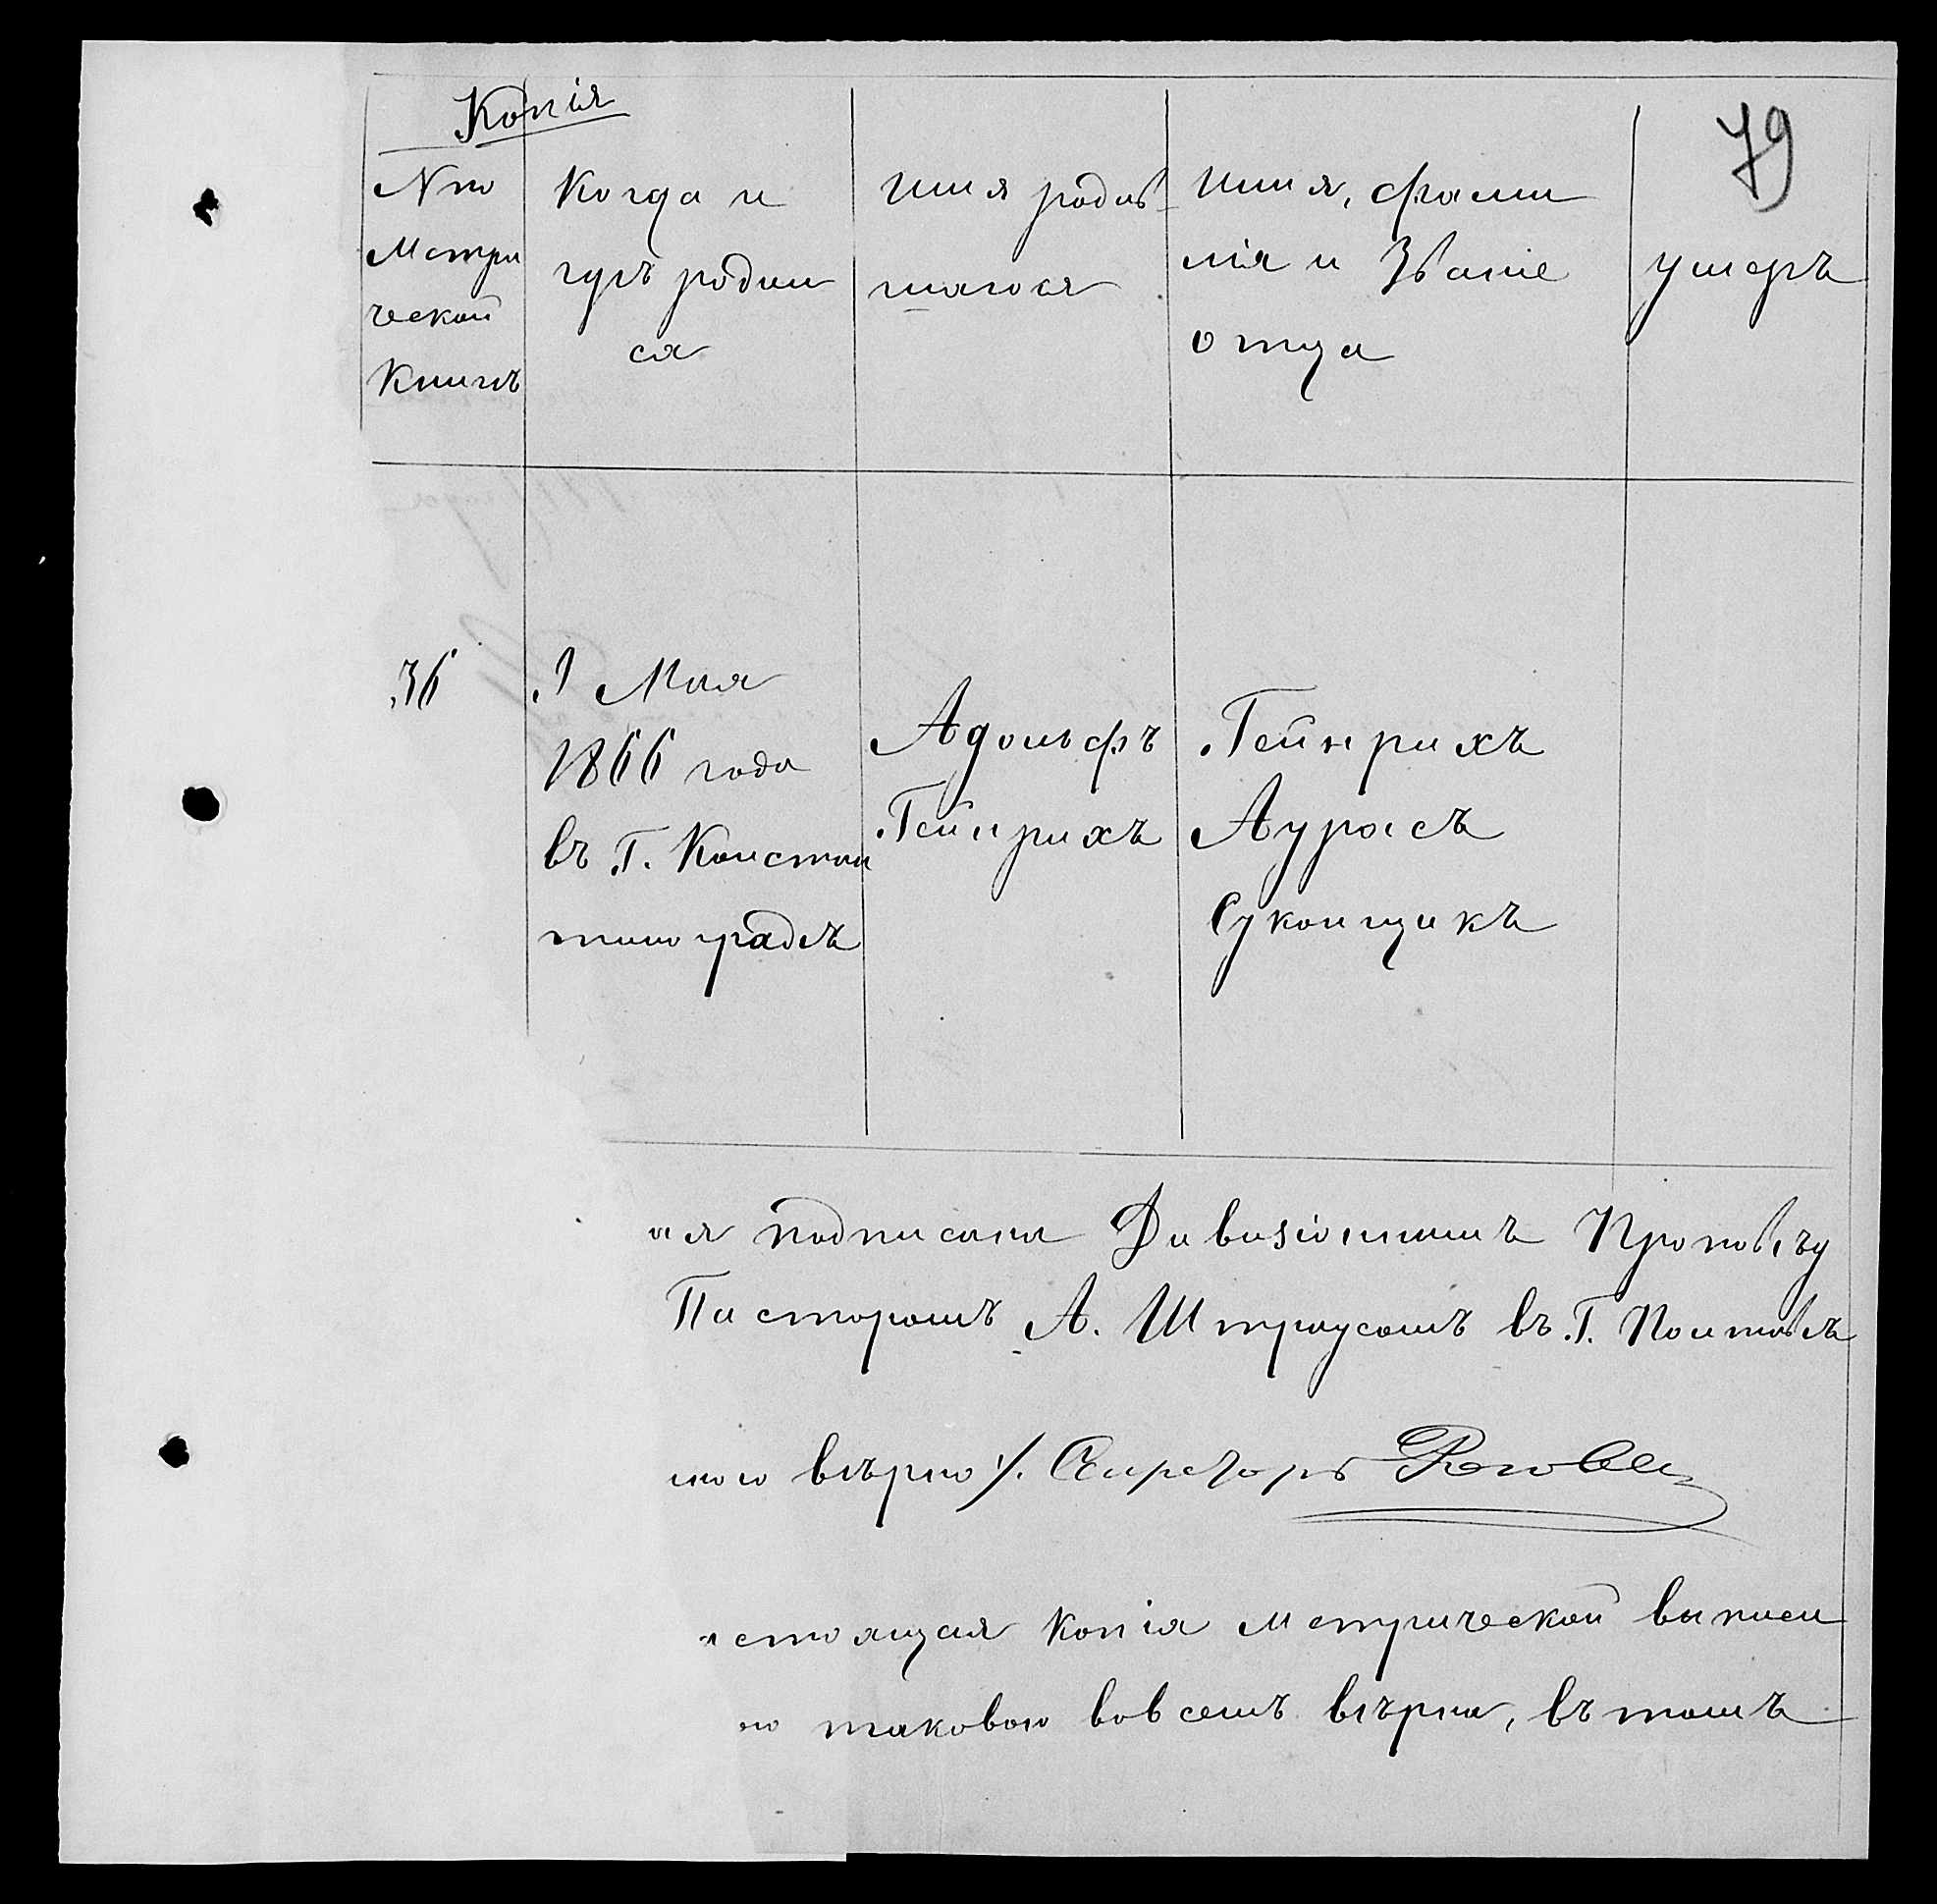 Копія
79
№ по
Метри
ческой
Книгѣ
Когда и
гдѣ родил
ся
Имя родив
шагося
Имя, фами
лія и Званіе
отца
умеръ
36
1 Мая
1866 года
въ Г. Констан
тиноградѣ
Адольфъ
Гейнрихъ
Гейнрихъ
Аурасъ
Суконщикъ
ая подписана Дивизіоннымъ Проповѣд
Пасторомъ А. Штраусомъ въ Г. Полтавѣ
ною вѣрно /. Секретарь
стоящая копія Метрической выписи
ю таковою вовсемъ вѣрна, въ томъ